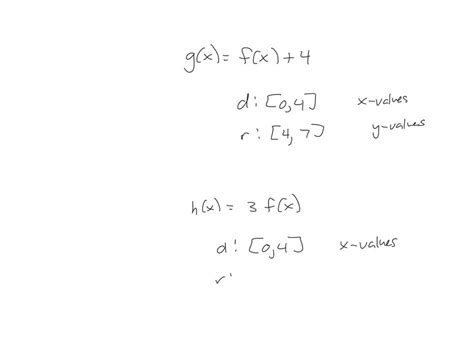 g(x) = f(x) + 4
d: [0,4] x-values
r: [4,7] y-values
h(x) = 3 f(x)
d: [0,4] x-values
r: